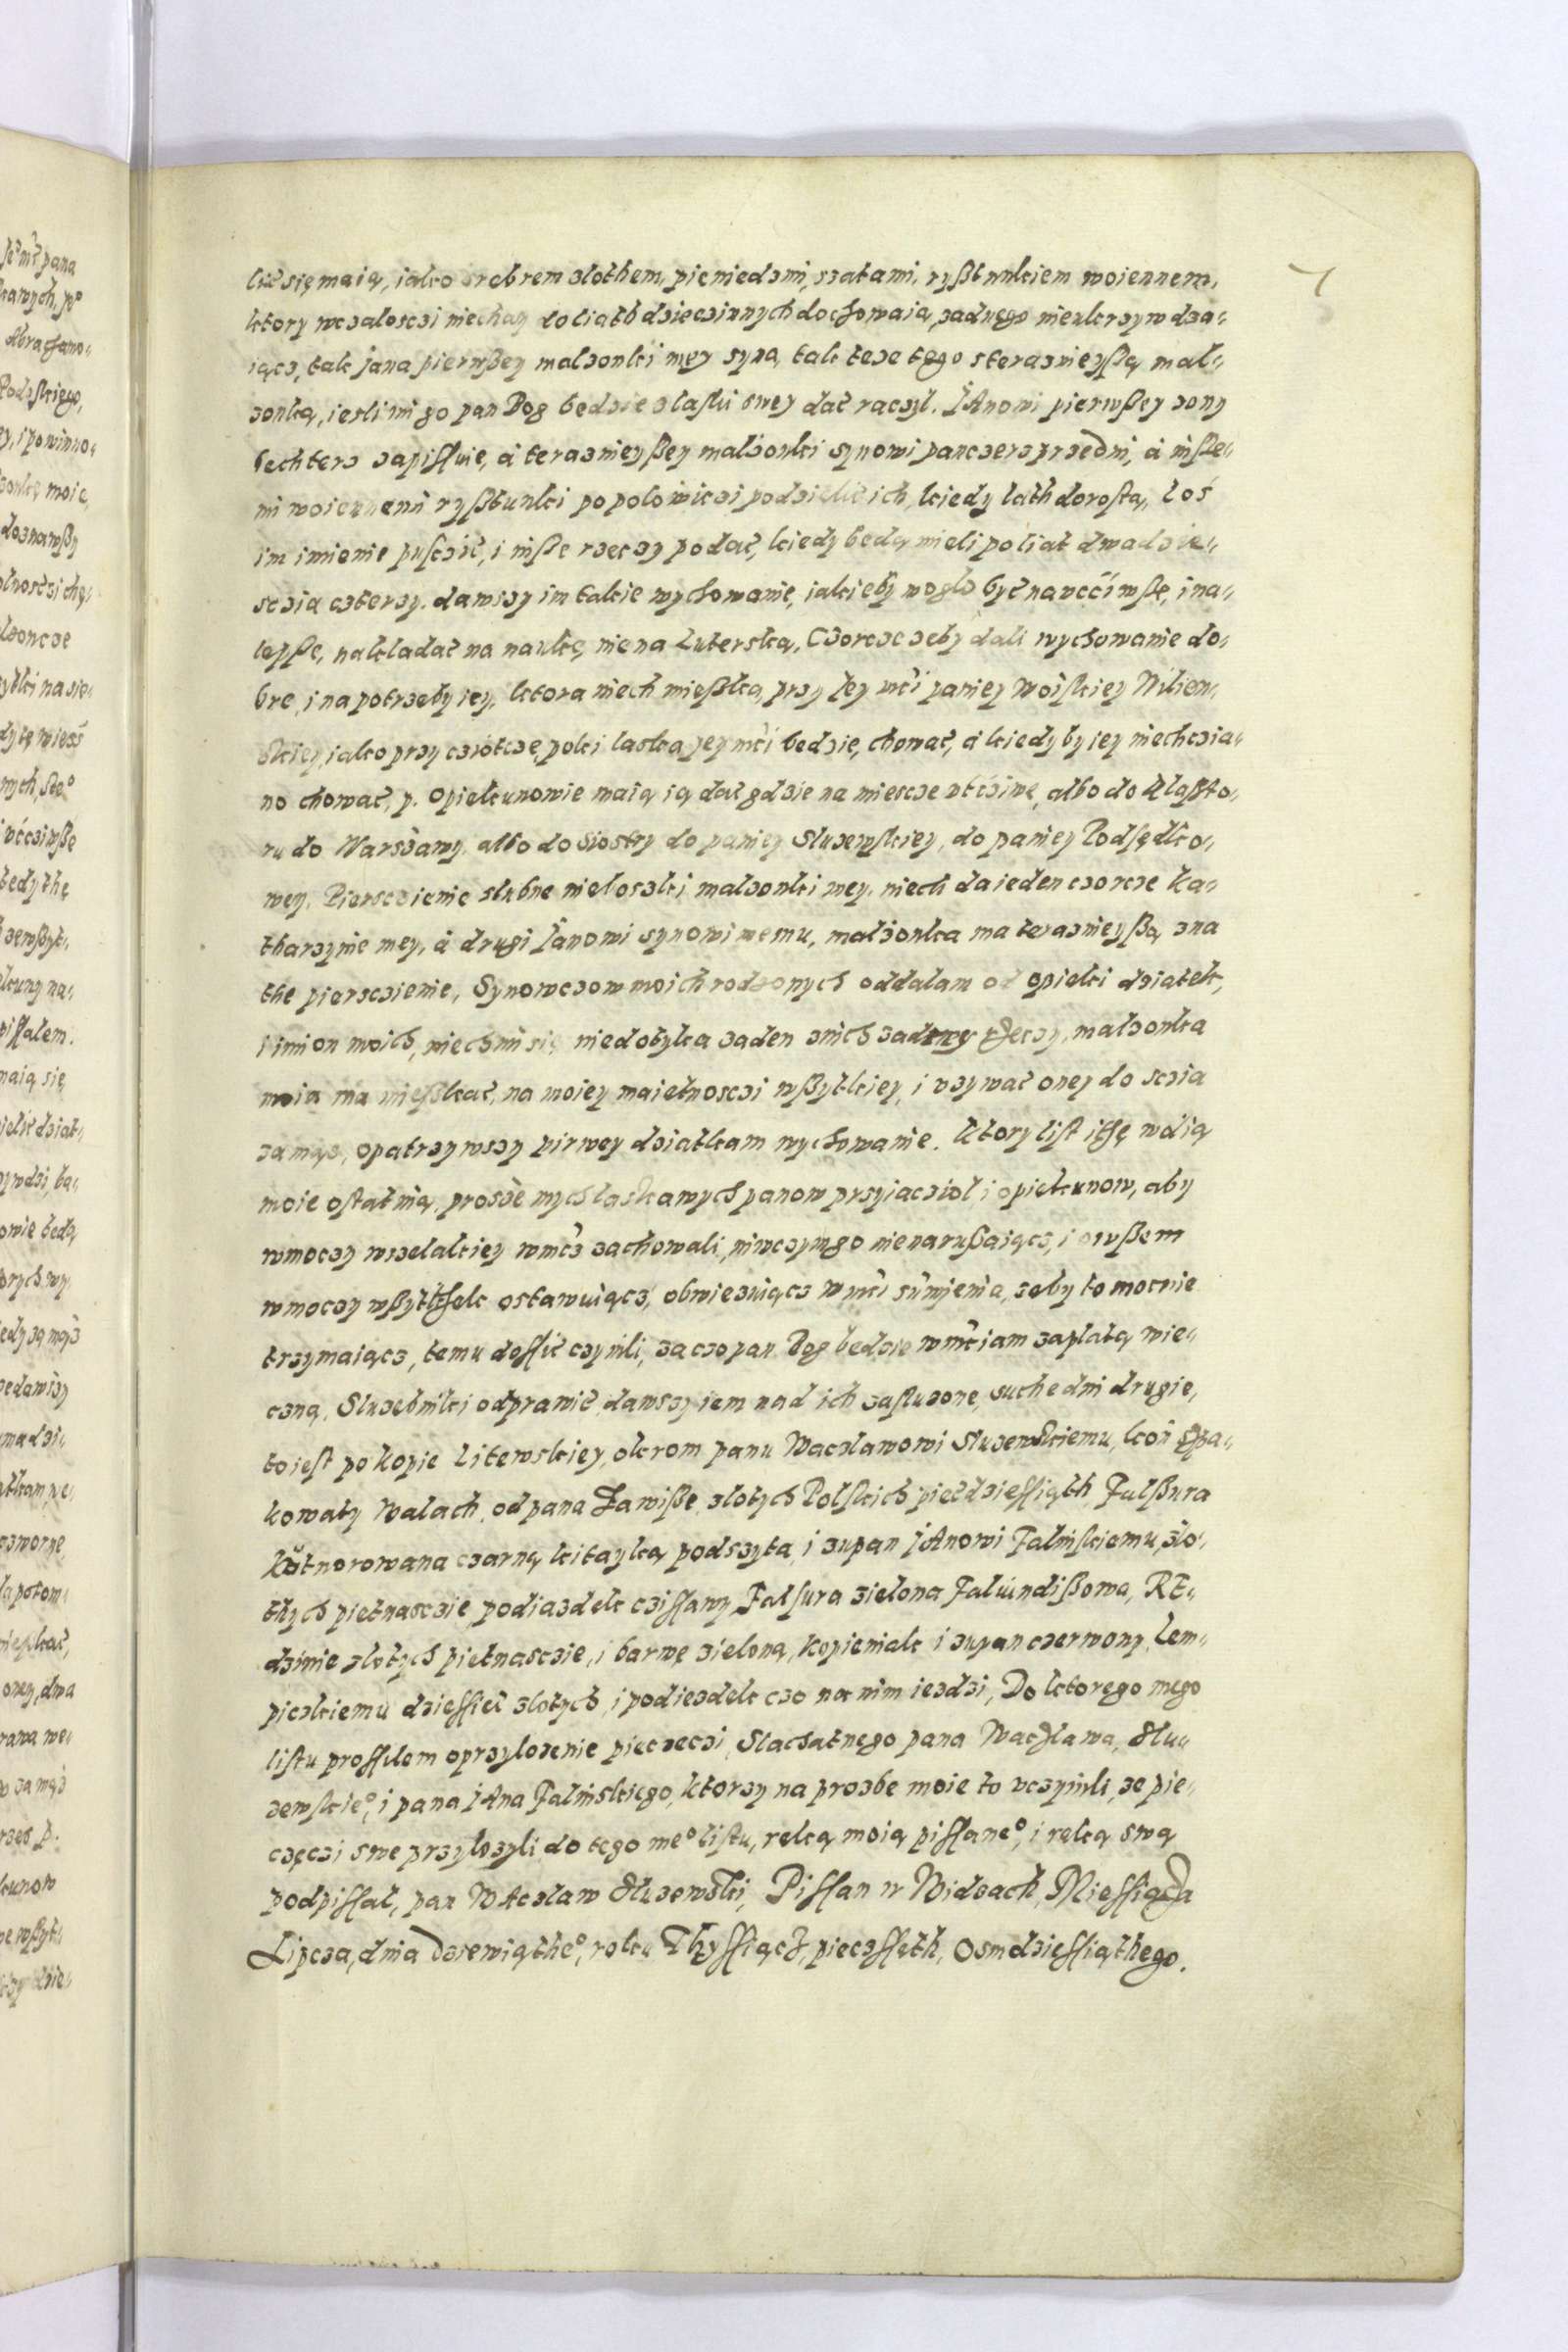 7
lić się maią, iako srebrem złothem, pieniedzmi, szatami, ryßtunkiem woiennem,
ktory wcałosczi niechay do liath dzieczinnych dochowaia zadnego nieukrzywdza-
iącz, tak Jana pierwßey malzonki mey syna, tak teze tego steraznieyßą mal-
zonką, iesli mi go pan Bog będzie z łaski swey dać raczył. JAnowi pierwßey zony
bechterz zapiſſuie, á terazniejßey malżonki synowi panczerz przedni, á inße-
mi woiennemi ryßtunki po polowiczi podzielić ich, kiedy lath doroſtą, toś
im imienie puſczić, i inße rzeczy podać, kiedy będą mieli po liat dwadzie-
sczia czterzy. dawszy im takie wychowanie, iakieby mogło być naucciwße, i na-
lepße, nakładać na naukę, nie na Luterską, Czorcze zeby dali wychowanie do-
bre, i na potrzeby iey, ktora niech mießka, przy Jey mći paniey Woiſkiey Wilien-
skiey, iako przy cziotcze, poki laska jey mći bedzie, chować, á kiedy by iey niechczia-
no chować, p. opiekunowie maią ią dać gdzie na miescze utćziwe, albo do Klaßto-
ru do Warszawy, albo do Siostry do paniey Służewſkiey, do paniey Podsędko-
wey. Piersczienie slubne nieboszki malzonki mey, niech da ieden czorcze Ka-
tharzynie mey, á drugi Janowi synowi memu, malżonka ma terazniejßą zna
the piersczienie, Synowczow moich rodzonych oddalam od opieki dziatek,
i imion moich, niech mi się niedotyka zaden znich zadney rzeczy, malzonka
moia ma mießkać, na moiey maietnosczi wßytkiey, i uzywać oney do sczia
za mąz, opatrzywszy pirwey dziatkam wychowanie. Ktory liſt i tę wolią
moie oſtatnią, proszę mych laskawych panow przyiacziol i opiekunow, aby
wmoczy wszelakiey wmćz zachowali, niwczymgo nienarußaiącz, i owßem
wmoczy wßytko ostawuiącz, obwiezuiącz wmći sumjenia, zeby to mocnie
trzymaiącz, temu doſſić czynili, za czo pan Bog będzie wmćiam zaplatą wie-
czną, Sluzebniki odprawić, dawszy iem nad ich zaſluzone, suche dni drugie,
to ieſt po kopie Litewskiey, okrom panu Waczlawowi Sluzewskiemu, koń szpa-
kowaty Walach, od pana Zawiße, zlotych Polſkich pięćdzieſſiąth, Falßura
katnorowana czarną kitayką podszyta, i zupan JAnowi Falinſkiemu, zło-
thych pietnasczie, podiazdek cziſſawy, Falſura zielona Falundißowa, RE-
dzinie zlotych pietnasczie, i barwę zieloną, kopieniak i zupan czerwony, Lem-
pickiemu dzieſſieć zlotych, i podiezdek czo na nim iezdzi, Do ktorego mego
liſtu proſſilem oprzylozenie pieczeczi, Slachatnego pana Waczlawa, Slu-
zewſkie°, i pana JAna Falinskiego, ktorzy na prozbe moie to uczynili, ze pie-
częczi swe przylozyli do tego me° liſtu, ręką moią piſſane°, i ręką swą
podpiſſal, pan WAczlaw Sluzewski, Piſſan w Widzach, Mieſſiącza
Lipcza, dnia dziewiąthe°, roku Thyſſiącz, pieczſſeth, Osmdzieſſiąthego.